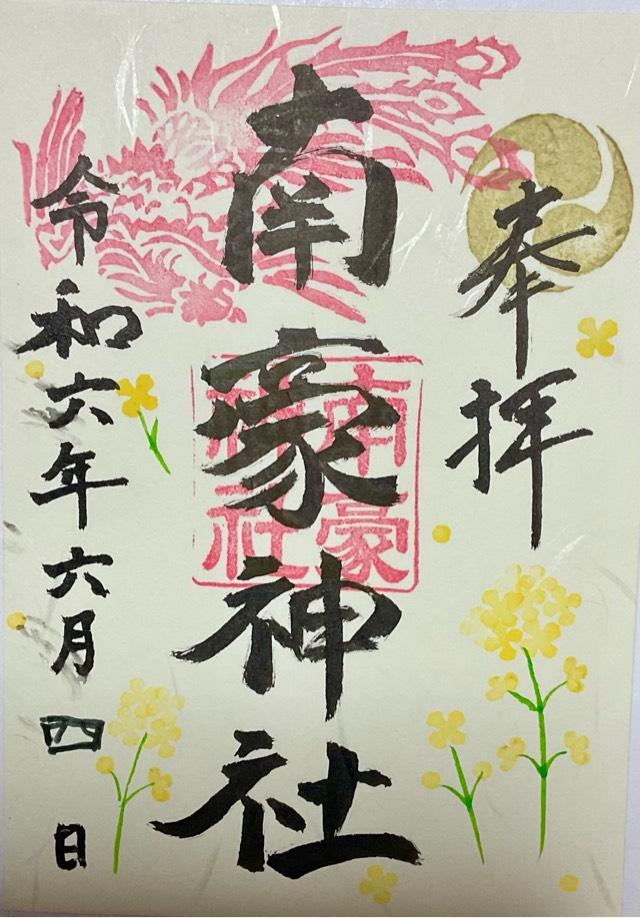 奉拝
南豪神社
南豪
神社
令和六年六月四日